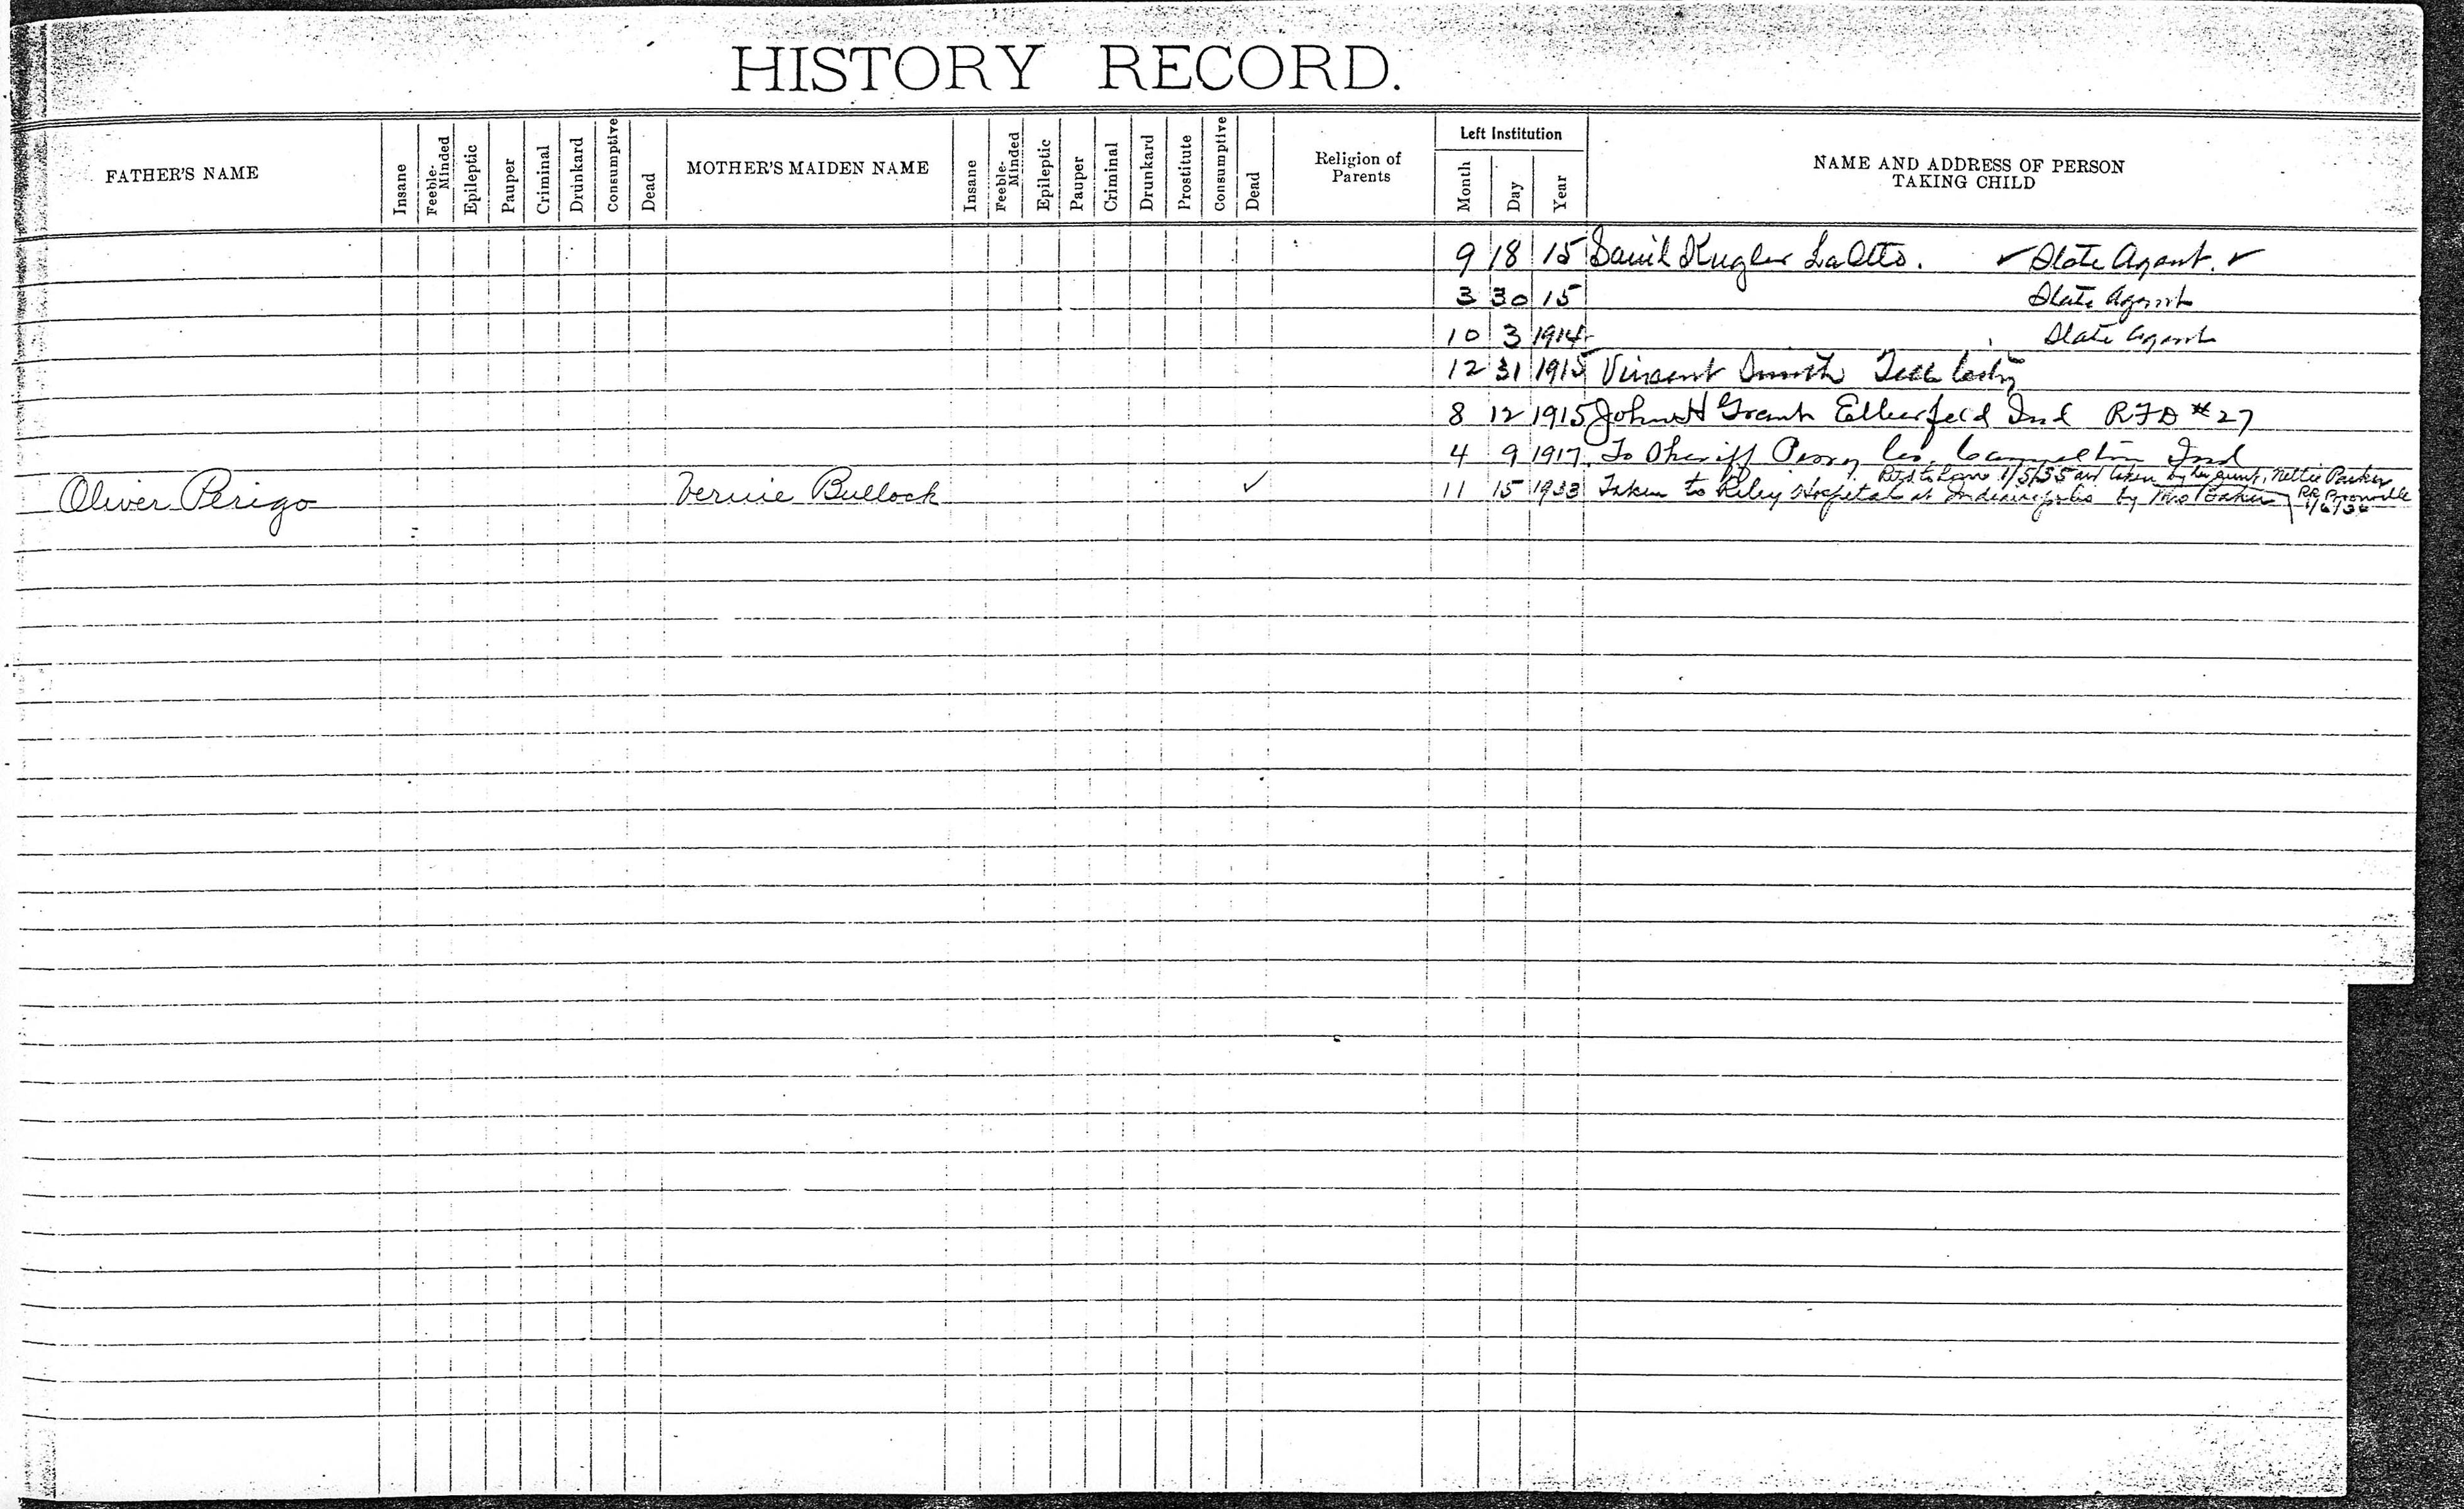 HISTORY RECORD.
FATHER'S NAME Insane Feeble-Minded Epileptic Pauper Criminal Drunkard Consumptive Dead MOTHER'S MAIDEN NAME Insane Feeble-Minded Epileptic Pauper Criminal Drunkard Prostitute Consumptive Dead Religion of Parents Left Institution Month Day Year NAME AND ADDRESS OF PERSON TAKING CHILD
9 18 15 Kugler LaOtto. ✓ State Agent. ✓
3 30 15 State Agent
10 3 1914 State Agent
12 31 1915 Vincent Smith Tell City
8 12 1915 John H Grant Elberfeld Ind RFD #27
4 9 1917 To Sheriff Perry Co. Cannelton Ind
Ret'd to home 1/5/35 and taken by her aunt, Nettie Parker
Oliver Perigo Vernie Bullock ✓ 11 15 1933 Taken to Riley Hospital at Indianapolis by Mrs